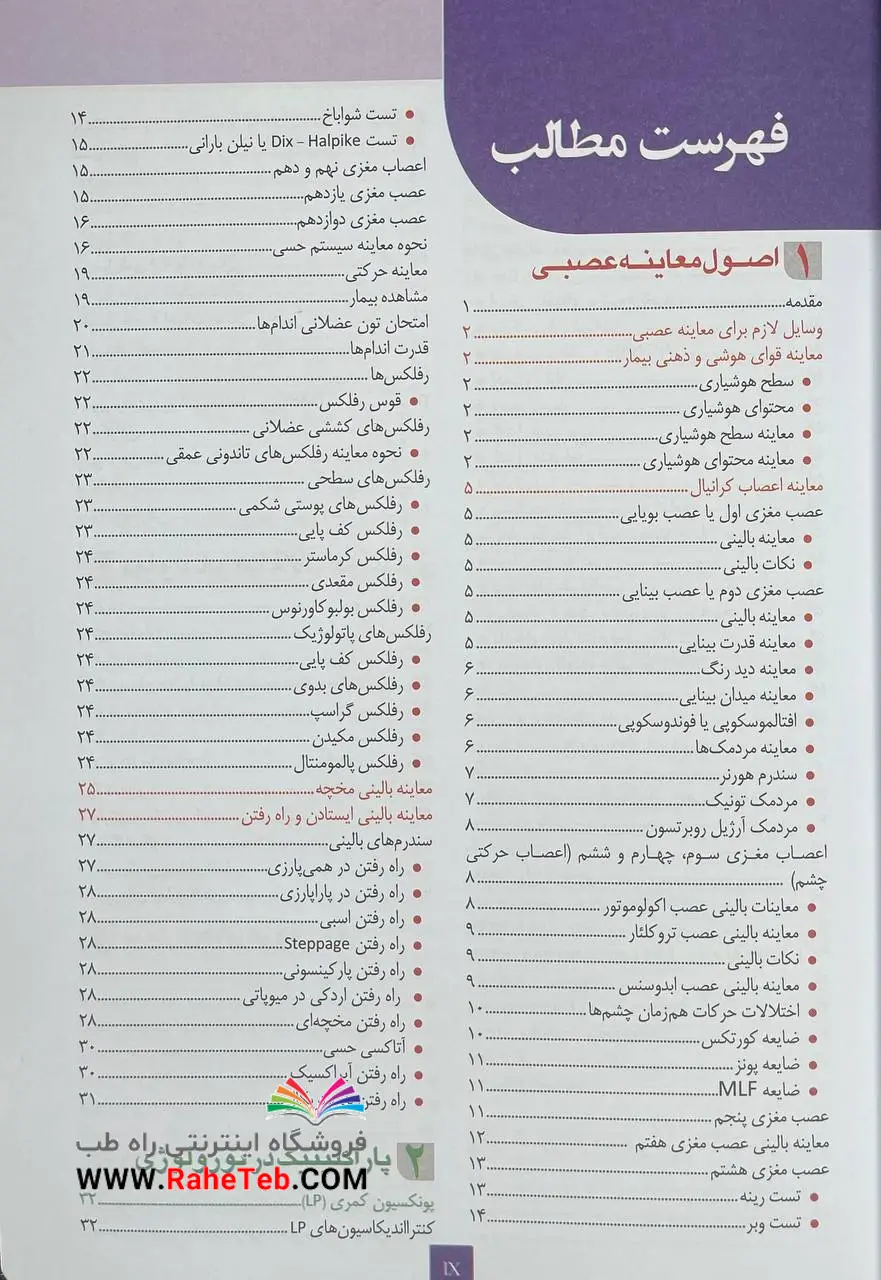 فهرست مطالب
۱ اصول معاینه عصبی
مقدمه ۱
وسایل لازم برای معاینه عصبی ۲
معاینه قوای هوشی و ذهنی بیمار ۲
• سطح هوشیاری ۲
• محتوای هوشیاری ۲
• معاینه سطح هوشیاری ۲
• معاینه محتوای هوشیاری ۲
معاینه اعصاب کرانیال ۵
عصب مغزی اول یا عصب بویایی ۵
• معاینه بالینی ۵
• نکات بالینی ۵
عصب مغزی دوم یا عصب بینایی ۵
• معاینه بالینی ۵
• معاینه قدرت بینایی ۵
• معاینه دید رنگ ۶
• معاینه میدان بینایی ۶
• افتالموسکوپی یا فوندوسکوپی ۶
• معاینه مردمک‌ها ۶
• سندرم هورنر ۷
• مردمک تونیک ۷
• مردمک آرژیل روبرتسون ۸
اعصاب مغزی سوم، چهارم و ششم (اعصاب حرکتی
چشم) ۸
• معاینات بالینی عصب اکولوموتور ۸
• معاینه بالینی عصب تروکلئار ۹
• نکات بالینی ۹
• معاینه بالینی عصب ابدوسنس ۹
• اختلالات حرکات هم‌زمان چشم‌ها ۱۰
• ضایعه کورتکس ۱۰
• ضایعه پونز ۱۱
• ضایعه MLF ۱۱
عصب مغزی پنجم ۱۱
معاینه بالینی عصب مغزی هفتم ۱۲
عصب مغزی هشتم ۱۳
• تست رینه ۱۳
• تست وبر ۱۴
• تست شواباخ ۱۴
• تست Dix – Halpike یا نیلن بارانی ۱۵
اعصاب مغزی نهم و دهم ۱۵
عصب مغزی یازدهم ۱۵
عصب مغزی دوازدهم ۱۶
نحوه معاینه سیستم حسی ۱۶
معاینه حرکتی ۱۹
مشاهده بیمار ۱۹
امتحان تون عضلانی اندام‌ها ۲۰
قدرت اندام‌ها ۲۱
رفلکس‌ها ۲۲
• قوس رفلکس ۲۲
رفلکس‌های کششی عضلانی ۲۲
• نحوه معاینه رفلکس‌های تاندونی عمقی ۲۲
رفلکس‌های سطحی ۲۳
• رفلکس‌های پوستی شکمی ۲۳
• رفلکس کف پایی ۲۳
• رفلکس کرماستر ۲۴
• رفلکس مقعدی ۲۴
• رفلکس بولبوکاورنوس ۲۴
رفلکس‌های پاتولوژیک ۲۴
• رفلکس کف پایی ۲۴
• رفلکس‌های بدوی ۲۴
• رفلکس گراسپ ۲۴
• رفلکس مکیدن ۲۴
• رفلکس پالمومنتال ۲۴
معاینه بالینی مخچه ۲۵
معاینه بالینی ایستادن و راه رفتن ۲۷
سندرم‌های بالینی ۲۷
• راه رفتن در همی‌پارزی ۲۷
• راه رفتن در پاراپارزی ۲۸
• راه رفتن اسبی ۲۸
• راه رفتن Steppage ۲۸
• راه رفتن پارکینسونی ۲۸
• راه رفتن اردکی در میوپاتی ۲۸
• راه رفتن مخچه‌ای ۲۸
• آتاکسی حسی ۳۰
• راه رفتن آپراکسیک ۳۰
• راه رفتن ۳۱
فروشگاه اینترنتی راه طب
۲ پاراکلینیک در نورولوژی
WWW.RaheTeb.COM
پونکسیون کمری (LP) ۳۲
کنترااندیکاسیون‌های LP ۳۲
IX